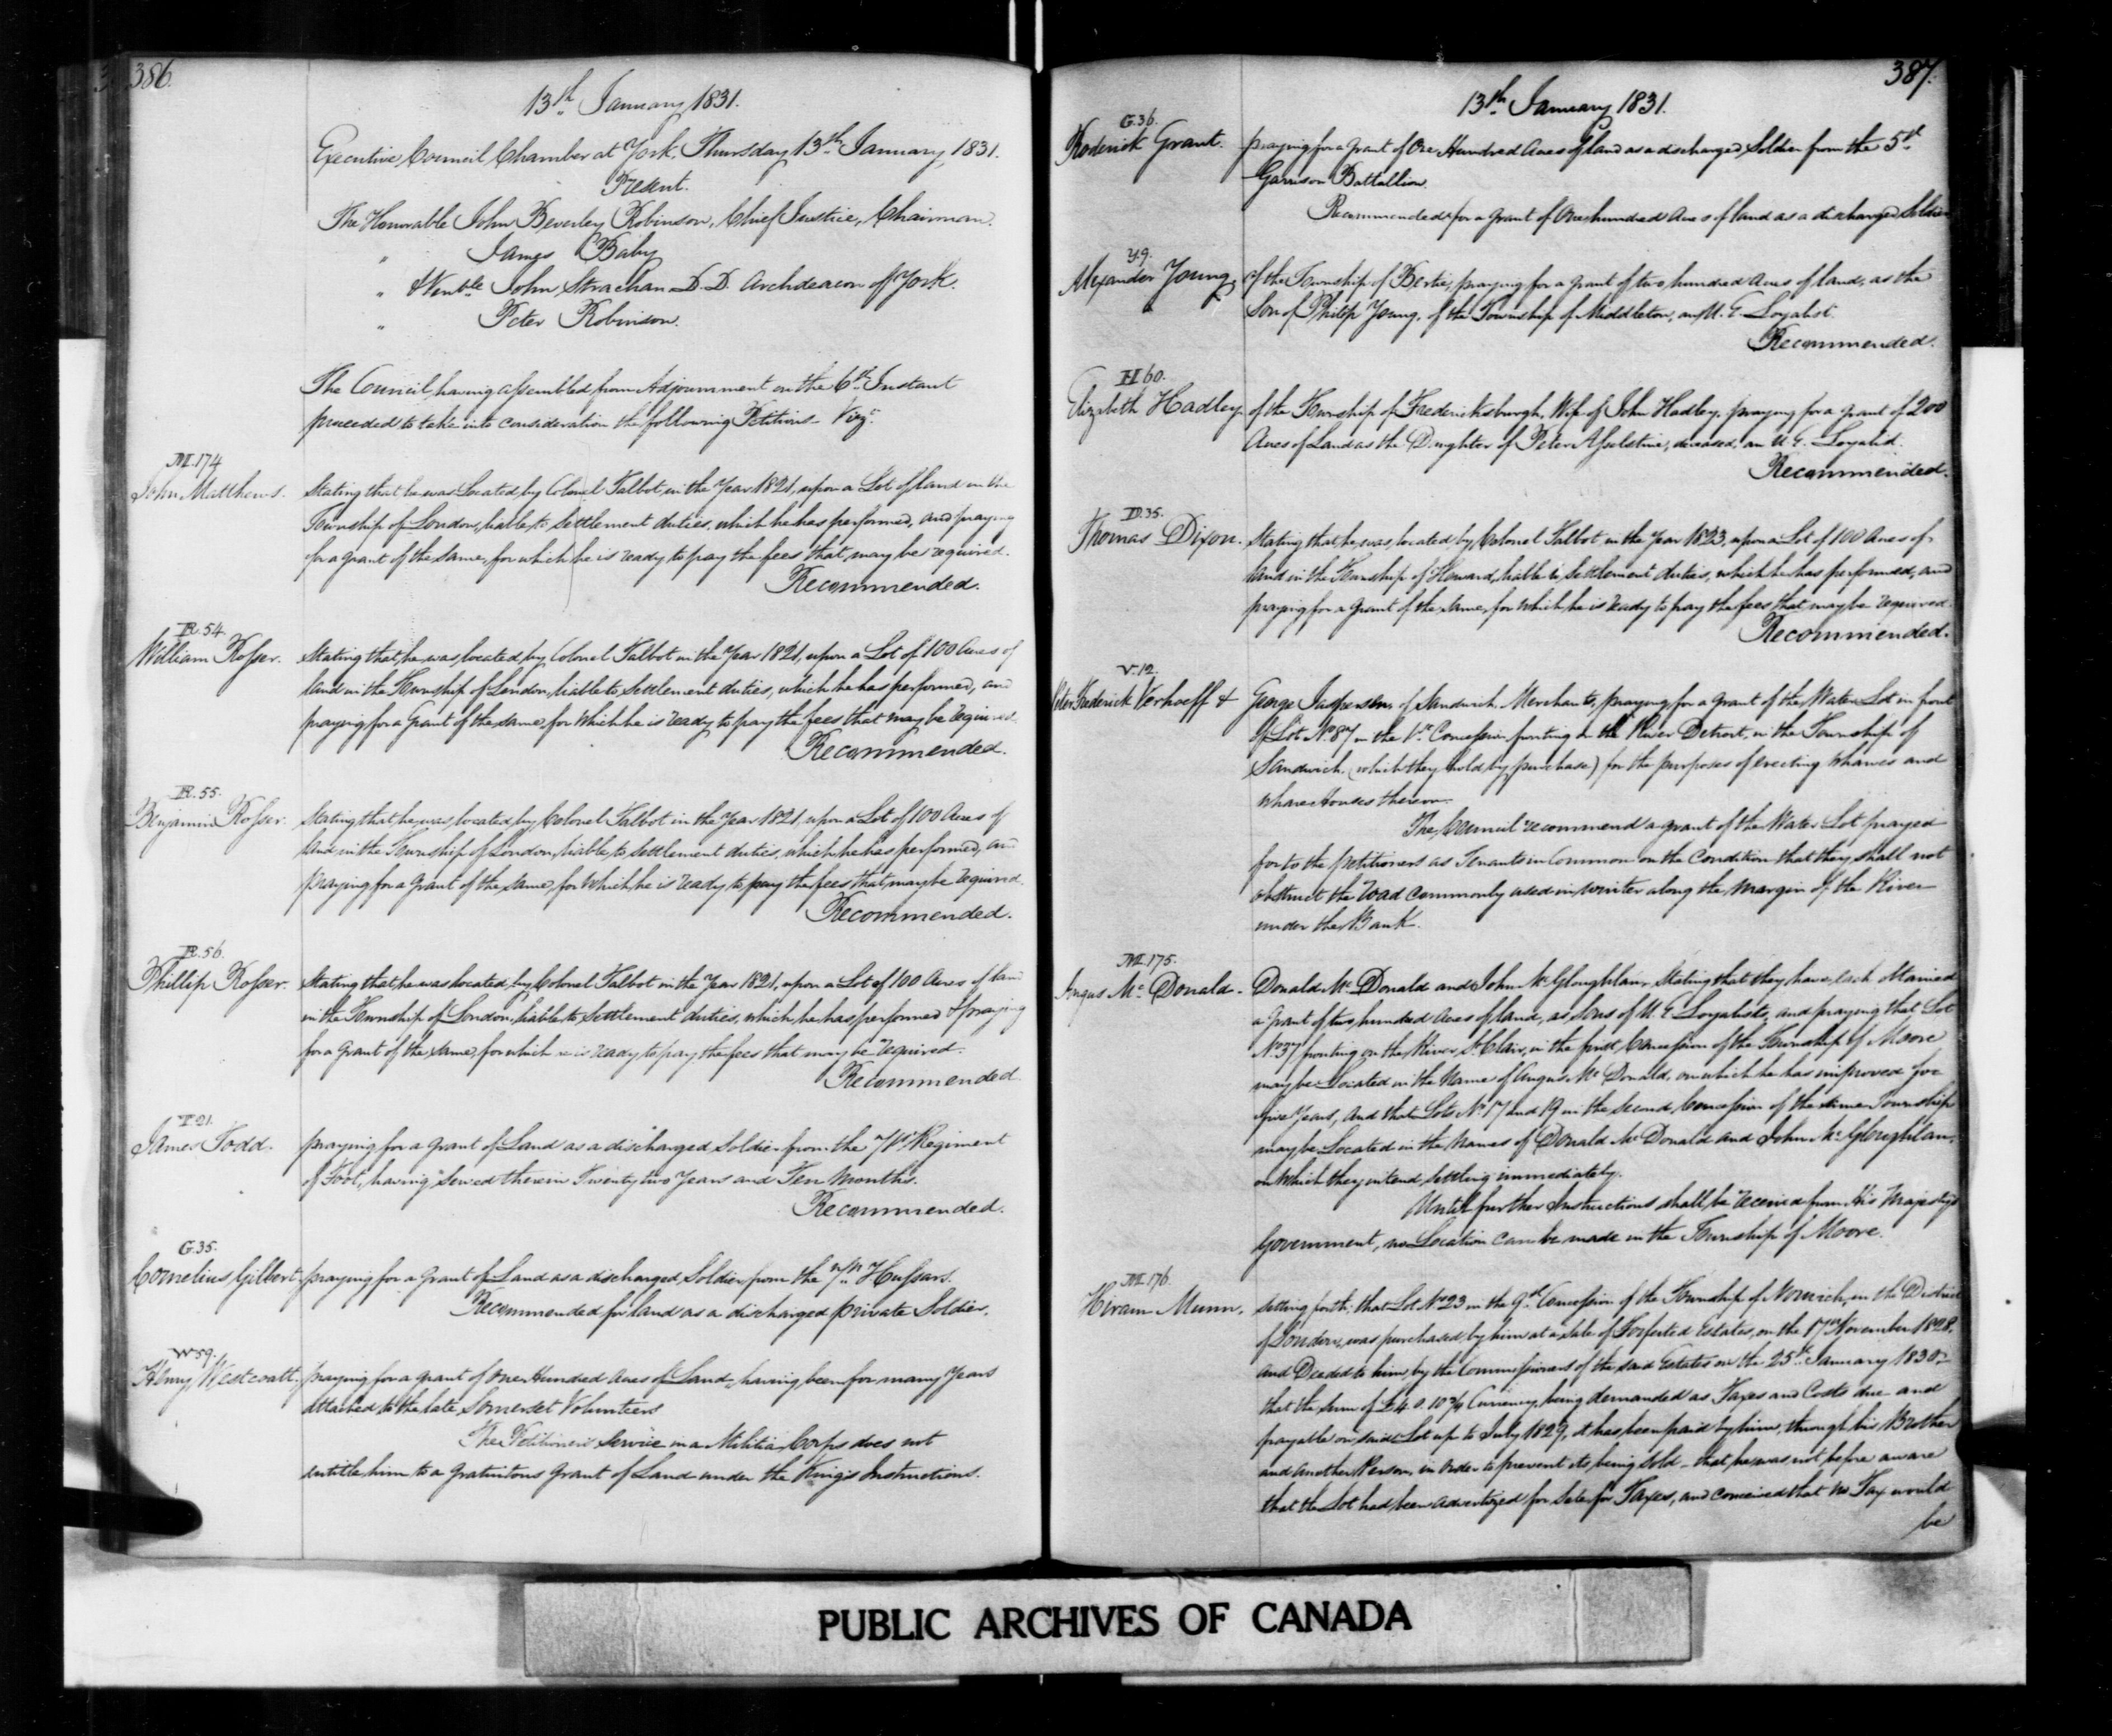 386.
13th January 1831.
Executive Council Chamber at York, Thursday 13th January, 1831.
Present.
The Honorable John Beverley Robinson, Chief Justice, Chairman.
" James Baby
" & Venble John Strachan D.D. Archdeacon of York.
" Peter Robinson.
The Council having assembled from Adjournment on the 6th Instant
proceeded to take into consideration the following Petitions Vizt.
M.174
John Matthews. Stating that he was Located by Colonel Talbot, in the Year 1821, upon a Lot of land in the
Township of London, liable to Settlement duties, which he has performed, and praying
for a grant of the same, for which he is ready to pay the fees that may be required.
Recommended.
R.54.
William Rosser. Stating that he was located by Colonel Talbot in the Year 1821, upon a Lot of 100 Acres of
land in the Township of London, liable to Settlement duties, which he has performed, and
praying for a Grant of the same, for which he is ready to pay the fees that may be required
Recommended.
R.55.
Benjamin Rosser. Stating that he was located by Colonel Talbot in the Year 1821, upon a Lot of 100 Acres of
land in the Township of London, liable to Settlement duties, which he has performed, and
praying for a grant of the same, for which he is ready to pay the fees that may be required
Recommended.
R.56.
Phillip Rosser. Stating that he was located by Colonel Talbot in the Year 1821, upon a Lot of 100 Acres of land
in the Township of London, liable to Settlement duties, which he has performed & praying
for a grant of the same, for which he is ready to pay the fees that may be required.
Recommended
T.21.
James Todd. praying for a grant of Land as a discharged Soldier from the 71st Regiment
of Foot, having served therein Twenty two Years and Ten Months.
Recommended.
G.35.
Cornelius Gilbert. praying for a Grant of Land as a discharged Soldier from the 7th Hussars.
Recommended for land as a discharged private Soldier.
W59.
Henry Westcoatt, praying for a grant of One Hundred Acres of Land, having been for many Years
attached to the late Somerset Volunteers
The Petitioners Service in a Militia Corps does not
entitle him to a gratuitous grant of Land under the King's Instructions.
387.
13th January 1831.
G.36.
Roderick Grant. praying for a grant of One Hundred Acres of land as a discharged Soldier from the 5th
Garrison Battallion.
Recommended for a grant of One hundred Acres of land as a discharged Soldier
Y.9.
Alexander Young, of the Township of Bertie, praying for a grant of two hundred Acres of land, as the
Son of Philip Young, of the Township of Middleton, an U.E Loyalist.
Recommended.
H 60.
Elizabeth Hadley of the Township of Fredericksburgh, Wife of John Hadley, praying for a grant of 200
Acres of Land as the Daughter of Peter Asselstine, deceased, an U.E. Loyalist.
Recommended.
D.35.
Thomas Dixon. Stating that he was located by Colonel Talbot in the Year 1823, upon a Lot of 100 Acres of
land in the Township of Howard, liable to Settlement duties, which he has performed, and
praying for a grant of the same, for which he is ready to pay the fees that may be required
Recommended.
V.12.
Peter Frederick Verhoeff & George Jasperson, of Sandwich Merchants, praying for a grant of the Water Lot in front
of Lot No. 87 in the 1st Concession fronting on the River Detroit, in the Township of
Sandwich, (which they hold by purchase) for the purposes of erecting Wharves and
Ware Houses thereon.
The Council recommend a grant of the Water Lot prayed
for to the petitioners as Tenants in Common on the Condition that they shall not
obstruct the road commonly used in winter along the margin of the River
under the Bank.
M.175.
Angus Mc Donald. Donald Mc Donald and John McGloughlan, Stating that they have each obtained
a grant of two hundred Acres of land, as Sons of U.E Loyalists, and praying that Lot
No. 37 fronting on the River St. Clair, in the first Concession of the Township of Moore
may be Located in the Name of Angus Mc Donald, on which he has improved for
five Years, and that Lots No. 17 and 19 in the second Concession of the same Township
may be Located in the names of Donald Mc Donald and John Mc Gloughlan,
on which they intend settling immediately.
Until further Instructions shall be received from His Majesty's
Government, no Location can be made in the Township of Moore.
M.176.
Hiram Munn, Setting forth, that Lot No 23 in the 9th Concession of the Township of Norwich, in the District
of London, was purchased by him at a sale of Forfeited Estates, on the 17th November 1828,
and Deeded to him, by the Commissioners of the said Estates on the 25th January 1830
that the sum of Currency, being demanded as Taxes and Costs due and
payable on said Lot up to July 1829, it has been paid by him, through his Brother
and another Person, in order to prevent its being sold - that he was not before aware
that the Lot had been advertized for Sale for Taxes, and conceived that no Tax would
be
PUBLIC ARCHIVES OF CANADA